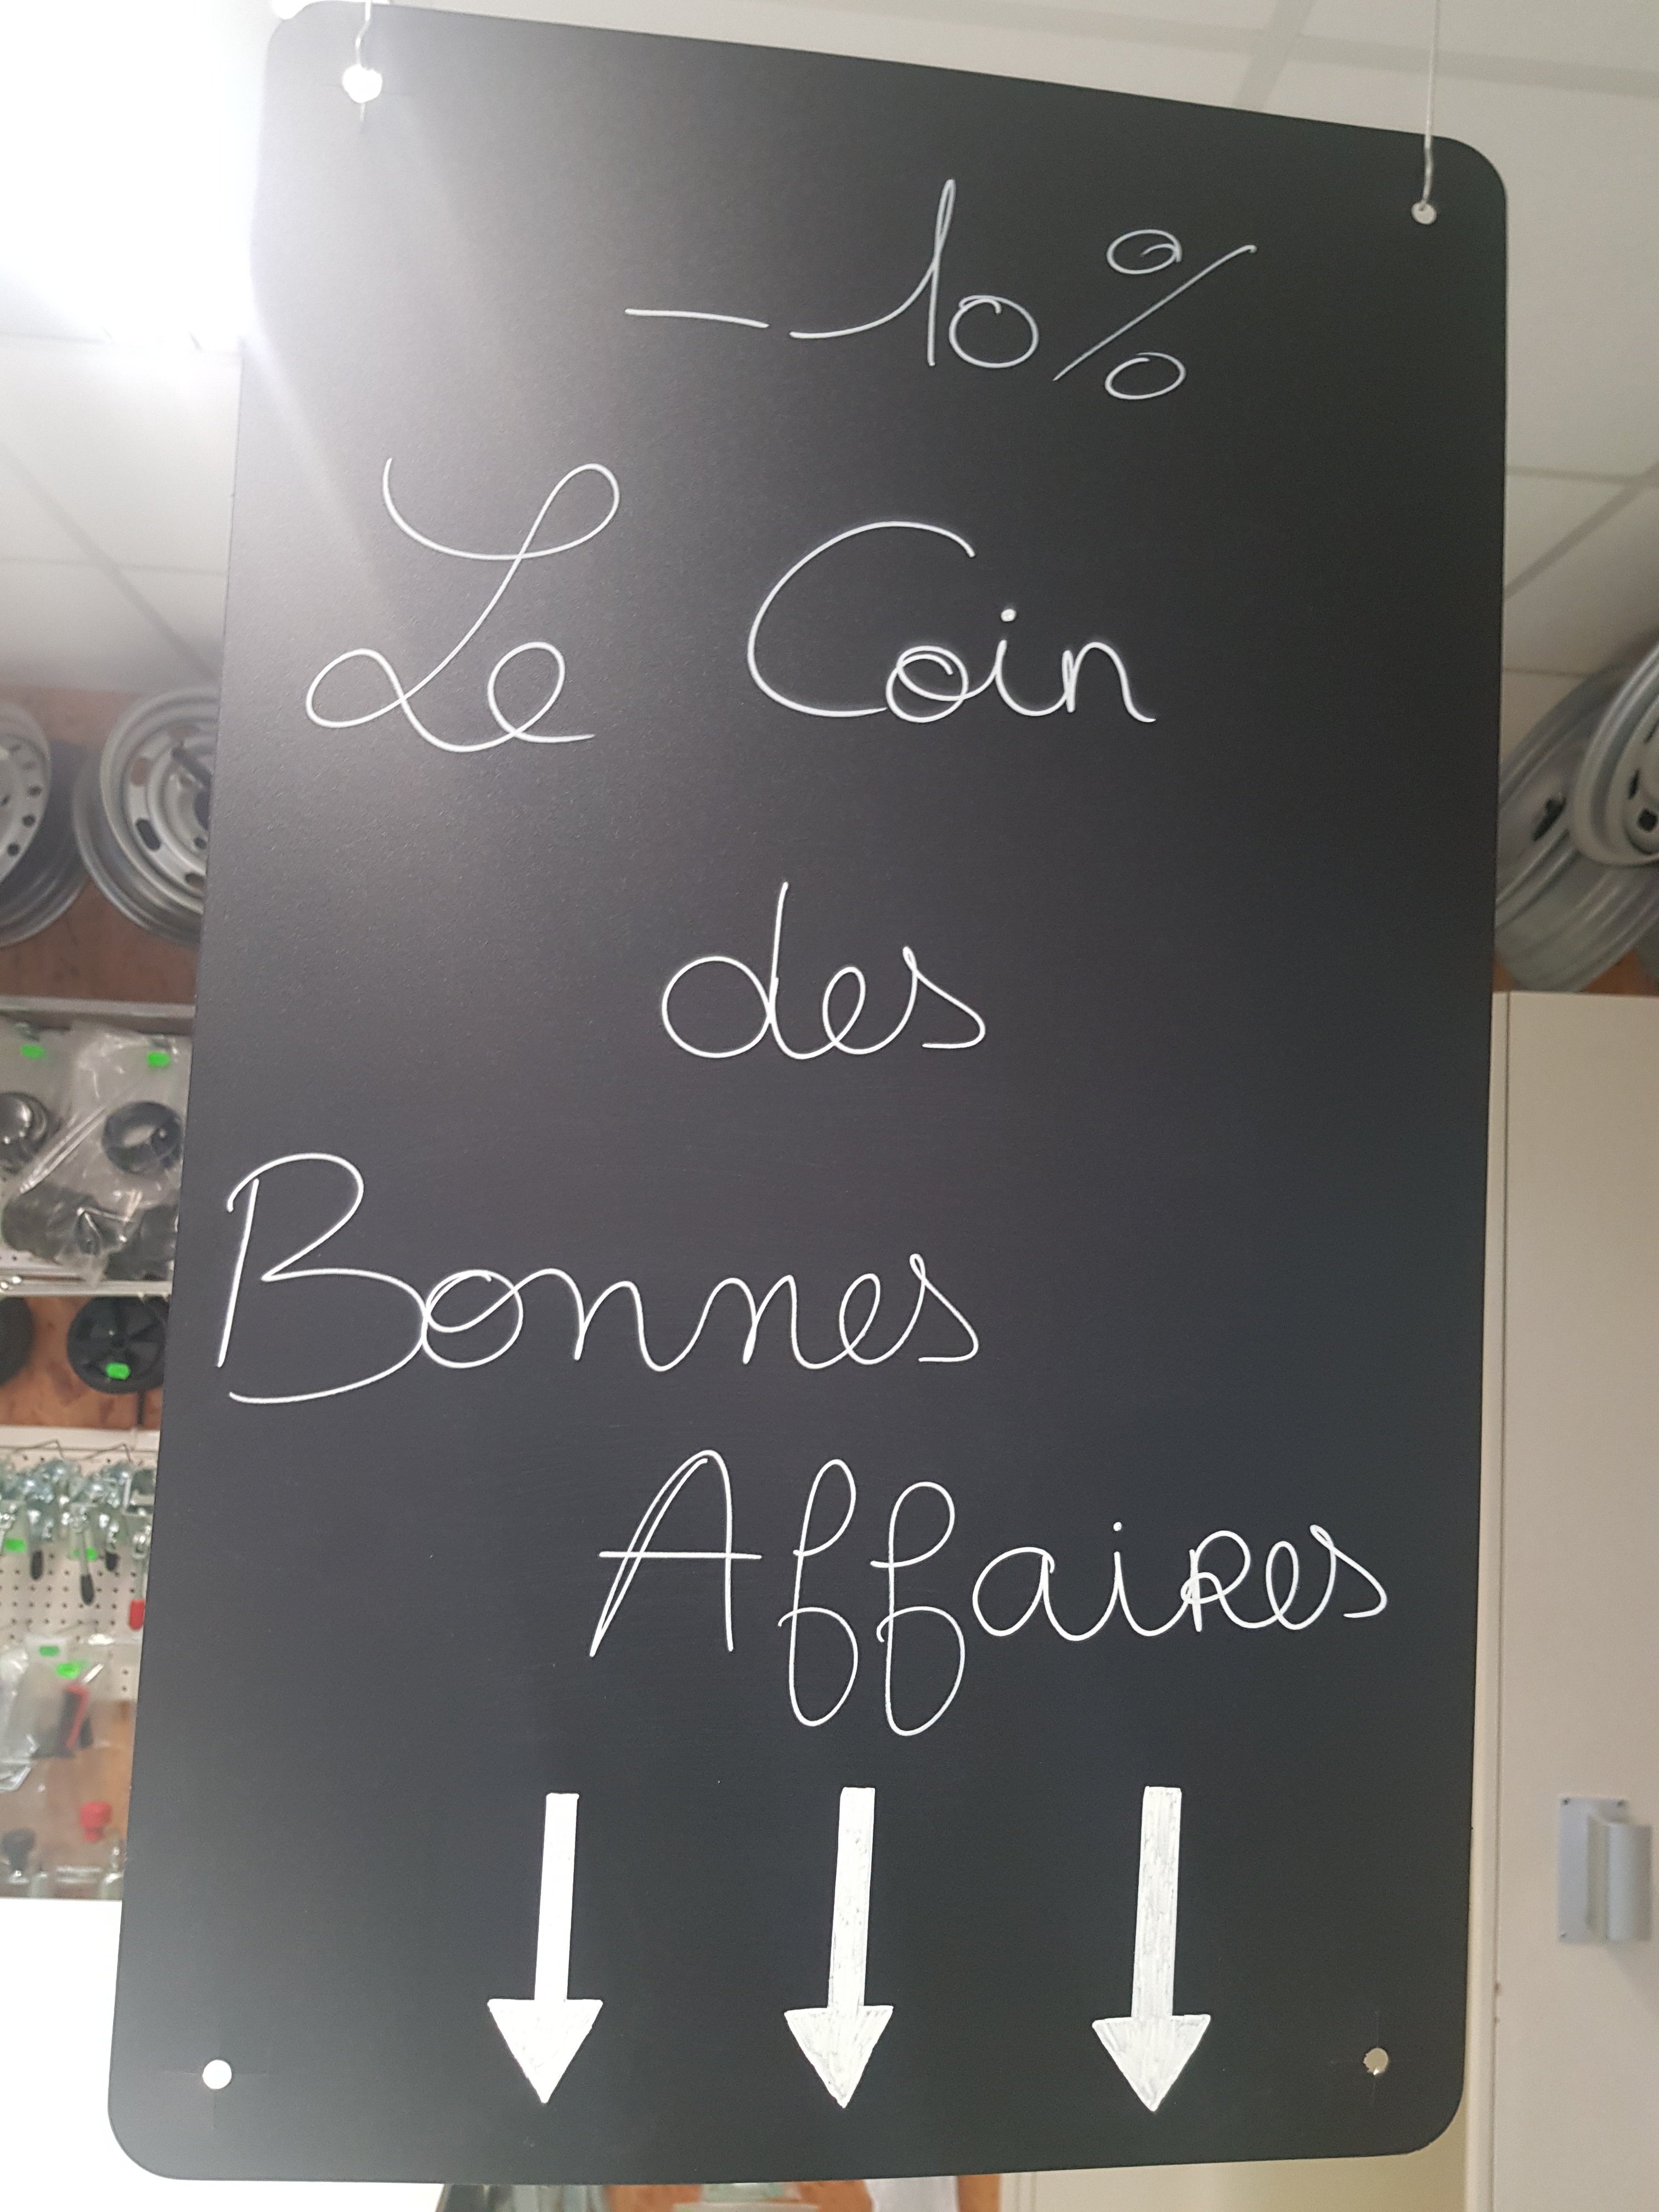 -10%
Le Coin
des
Bonnes
Affaires